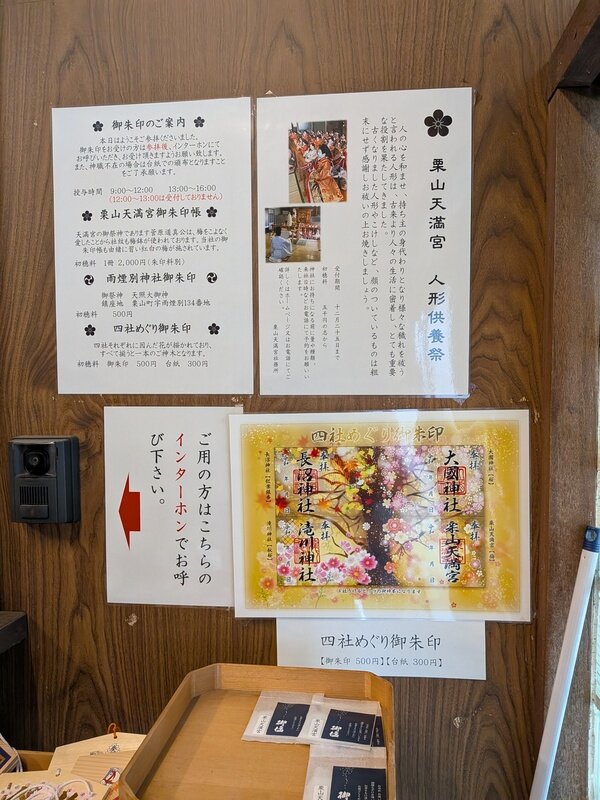 御朱印のご案内
本日はようこそご参拝くださいました。
御朱印をお受けの方は参拝後、インターホンにて
お呼びいただき、お受け頂きますようお願い致します。
また、神職不在の場合は台紙での頒布となりますこと
をご了承願います。
授与時間 9:00~12:00 13:00~16:00
(12:00~13:00は受付しておりません)
栗山天満宮御朱印帳
天満宮の御祭神であります菅原道真公は、梅をこよなく
愛したことから社紋も梅鉢が使われております。当社の御
朱印帳も由緒に習い紅白の梅が施されています。
初穂料 1冊 2,000円(朱印料別)
雨煙別神社御朱印
御祭神 天照大御神
鎮座地 栗山町字雨煙別134番地
初穂料 500円
四社めぐり御朱印
四社それぞれに因んだ花が描かれており、
すべて揃うと一本のご神木となります。
初穂料 御朱印 500円 台紙 300円
栗山天満宮 人形供養祭
人の心を和ませ、持ち主の身代わりとなり様々な穢れを祓う
と言われる人形は、古来より人々の生活に密着し、とても重要
な役割を果たしてきました。
古くなりました人形やこけしなど、顔のついているものは粗
末にせず感謝しお祓いの上お焼きしましょう。
受付期間 十二月二十五日まで
初穂料 五千円の志から
神社にお持ちになる前に量や種類、
来社日時などお電話にて予約をお願いい
たします。
詳しくはホームページ又はお電話にてご
確認ください。
栗山天満宮社務所
ご用の方はこちらの
インターホンでお呼
び下さい。
四社めぐり御朱印
大國神社【桜】
奉拝
大國神社
年 月 日
栗山天満宮【梅】
奉拝
栗山天満宮
年 月 日
長沼神社【紅葉楓】
奉拝
長沼神社
滝川神社【秋桜】
奉拝
滝川神社
四社めぐり御朱印
【御朱印 500円】【台紙 300円】
栗山天満宮
御塩
栗山天満宮
御塩
栗山天満宮